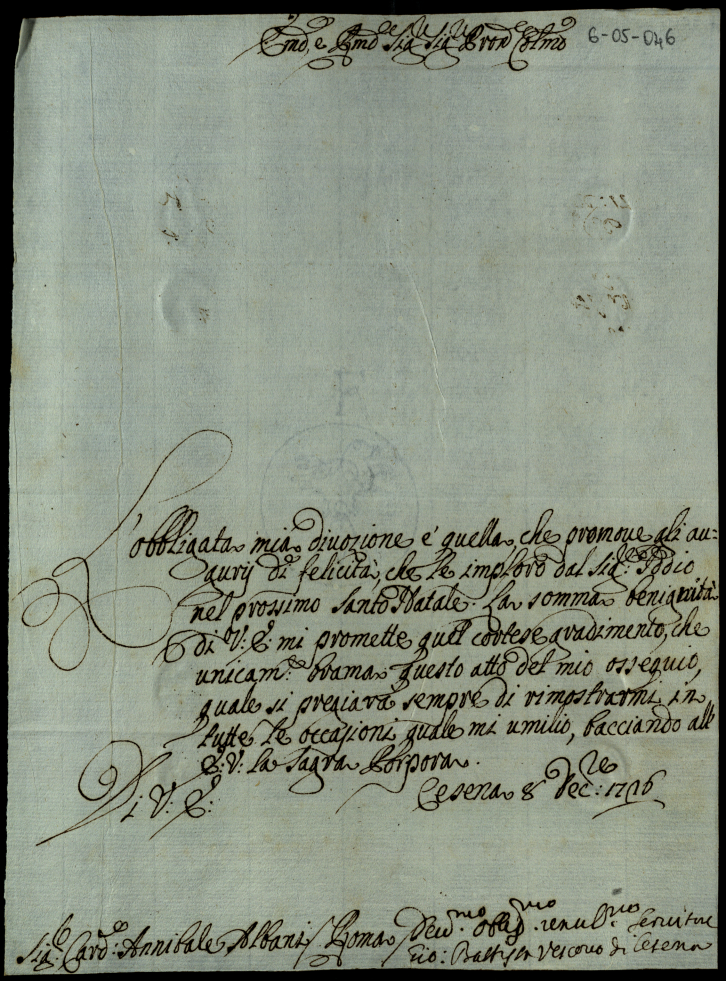 Em.o e Rmo Sig.r Sig.r Pron Colmo
6-05-046
L'obbligata mia divozione e' quella, che promove gli au=
gurij di felicità, che le imploro dal Sig.re Iddio
nel prossimo Santo Natale. La somma benignità
di V: E: mi promette quel cortese gradimento, che
unicam.te brama questo atto del mio ossequio,
quale si pregiarà sempre di rimostrarmi in
tutte le occasioni quale mi umilio, bacciando all'
E: V: la Sagra Porpora.
Di V: E:
Cesena 8 Dec:re 1716
Sig.r Card:le Annibale Albani / Roma / Dev.mo Obblig.mo Servitore
Gio: Battista Vescovo di Cesena